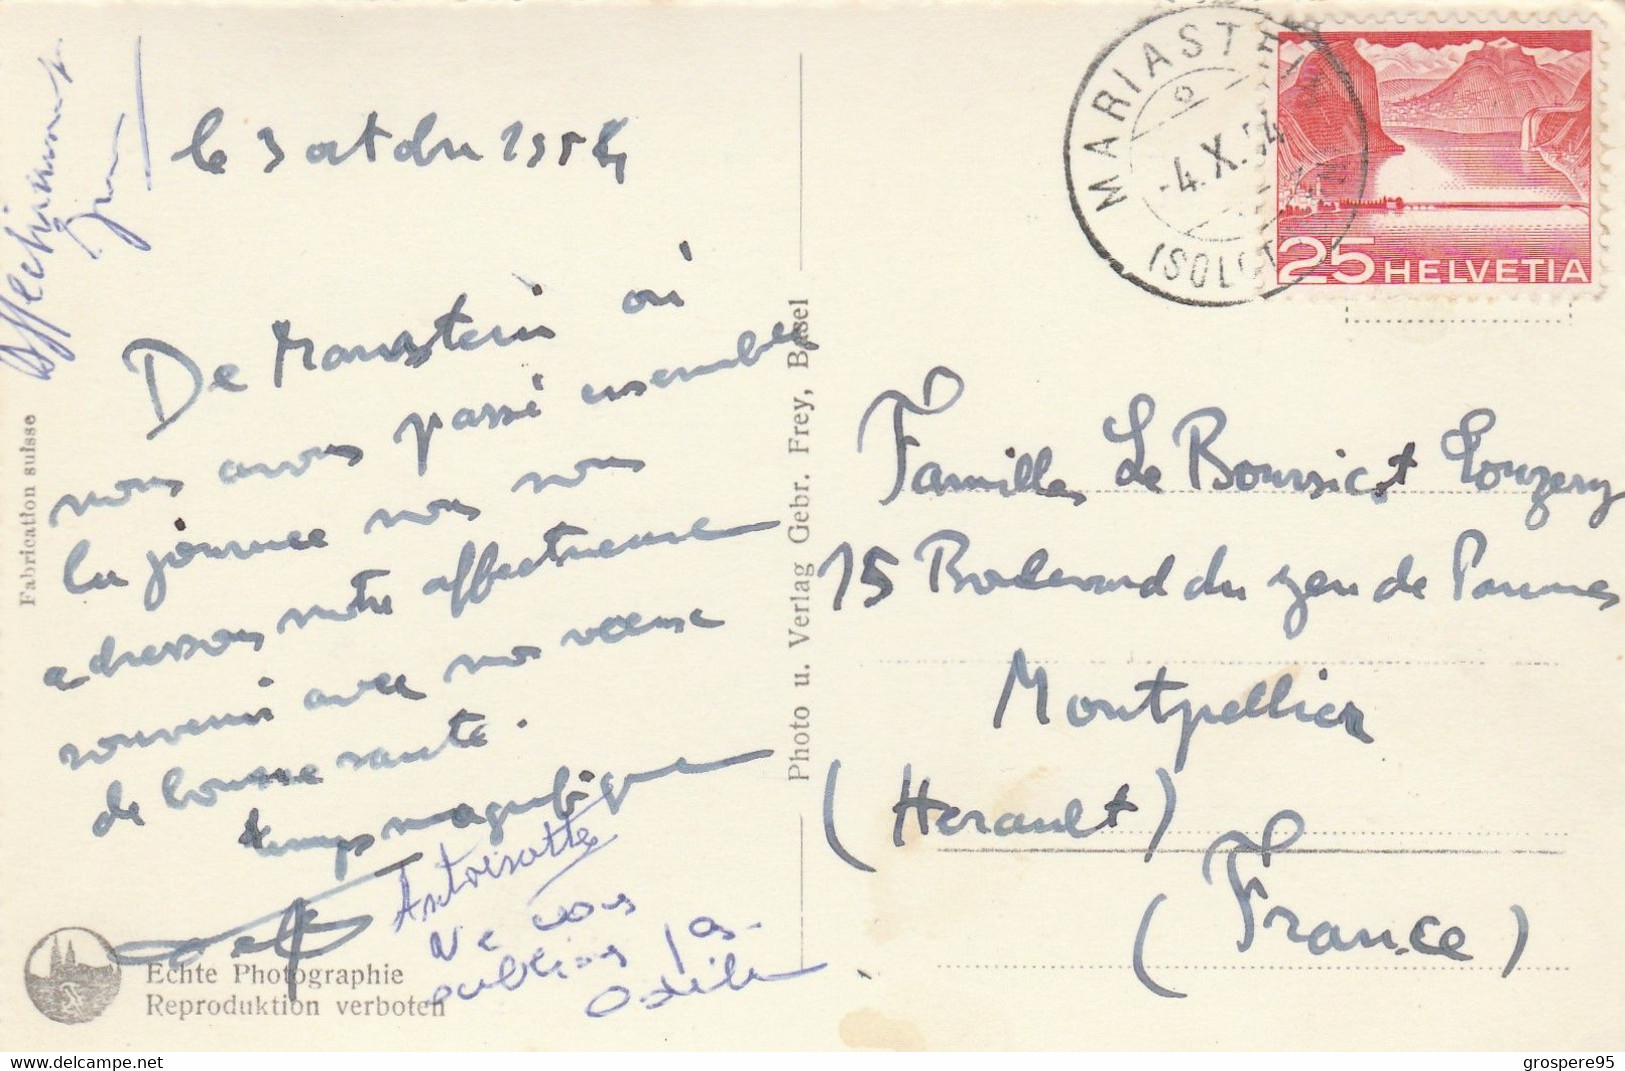 Affectueusement
le 3 octobre 1954
De Mariastein où
nous avons passé ensemble
la journée nous nous
adressons notre affectueux
souvenir avec nos vœux
de bonne santé.
temps magnifique
Antoinette
Ne vous
oublions pas.
Odile
Fabrication suisse
Echte Photographie
Reproduktion verboten
Photo u. Verlag Gebr. Frey, Basel
MARIASTEIN
-4.X.54
(SOLOT
25 HELVETIA
Familles Le Boursicot Louzery
15 Boulevard du Jeu de Paumes
Montpellier
(Herault)
(France)
grospere95